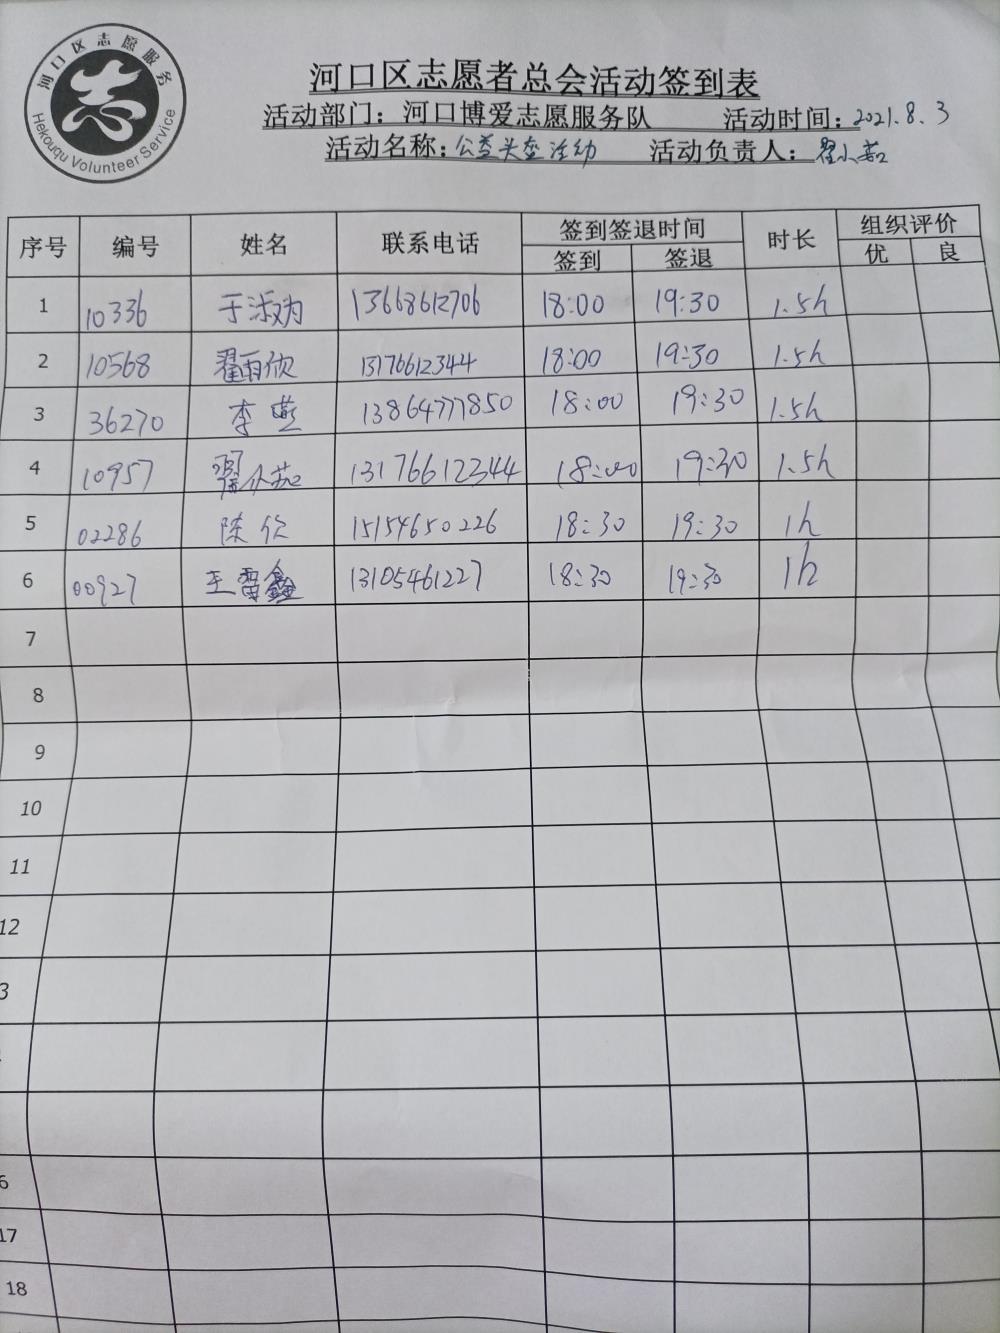 河口区志愿服务
志
Hekouqu Volunteer Service
河口区志愿者总会活动签到表
活动部门：河口博爱志愿服务队 活动时间：2021.8.3
活动名称：公益头查活动 活动负责人：翟小茹
序号 编号 姓名 联系电话 签到签退时间 时长 组织评价
签到 签退 优 良
1 10336 于 13668612706 18:00 19:30 1.5h
2 10568 翟雨欣 13176612344 18:00 19:30 1.5h
3 36270 李燕 13864777850 18:00 19:30 1.5h
4 10957 翟小茹 13176612344 18:00 19:30 1.5h
5 02286 陈 15154650226 18:30 19:30 1h
6 00927 王雪鑫 13105461227 18:30 19:30 1h
7
8
9
10
11
12
3
6
17
18